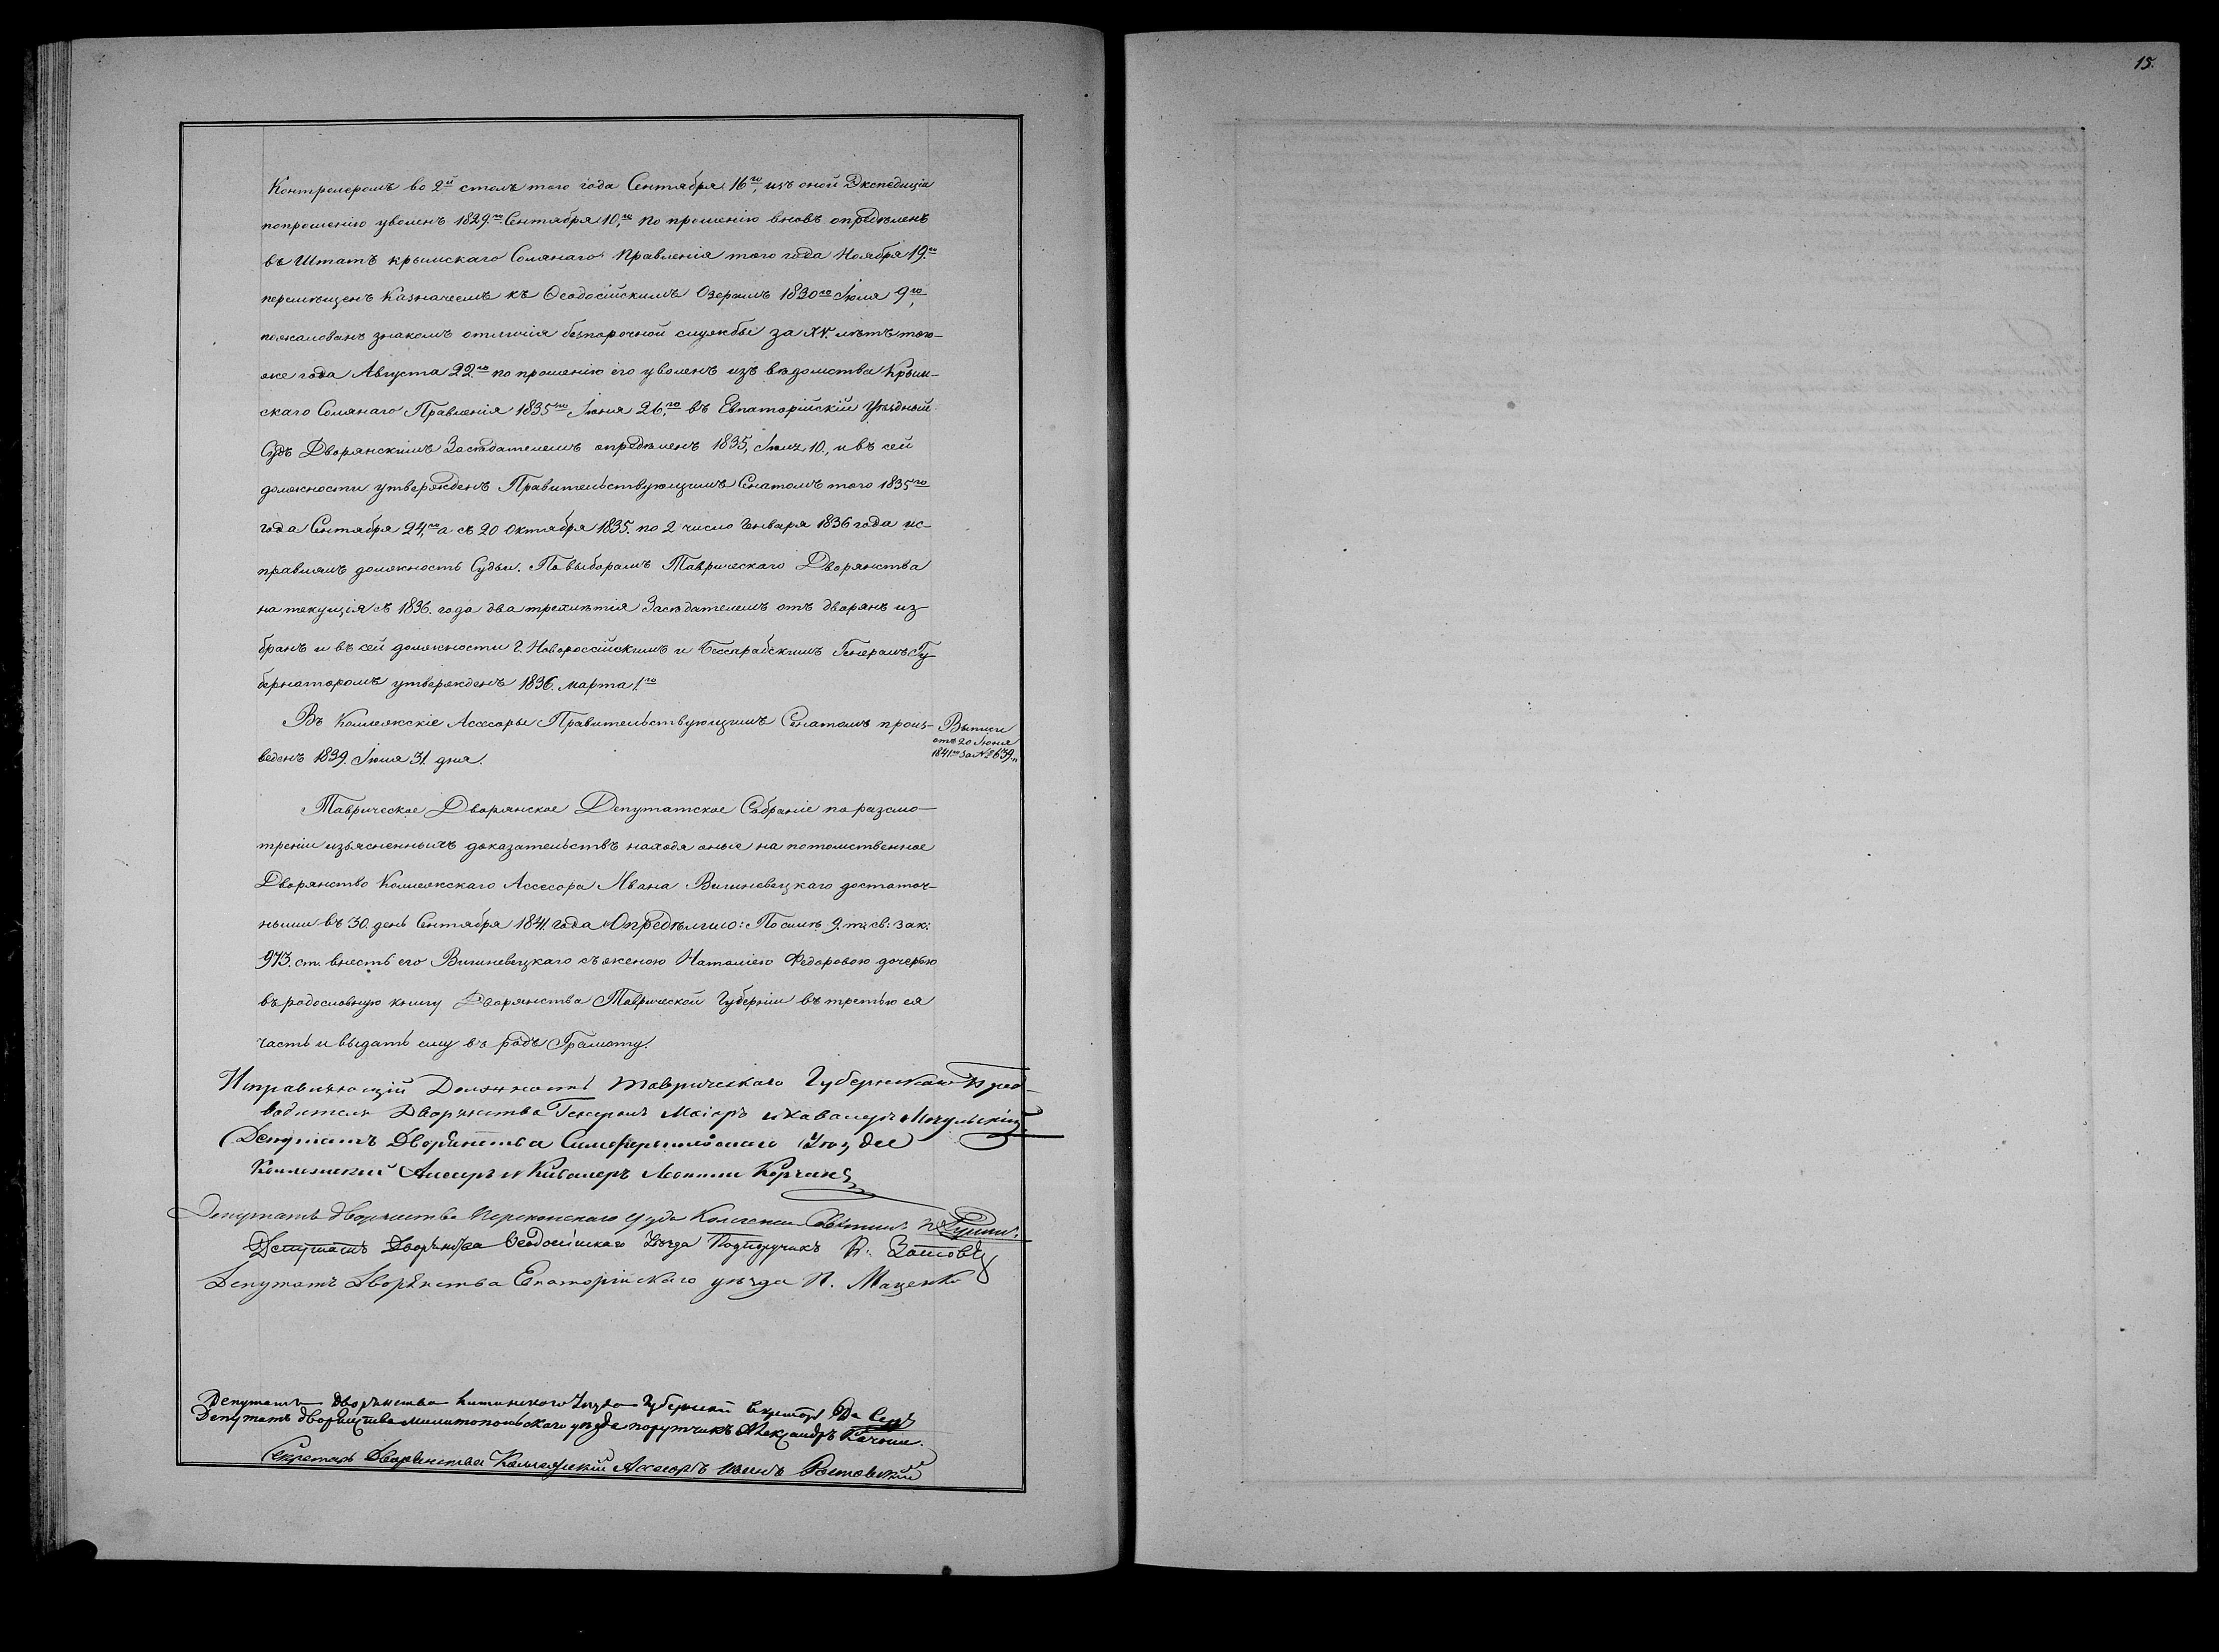 15.
Контролеромъ во 2й столъ того года Сентября 16го, изъ оной Экспедиціи
попрошенію уволенъ 1829го Сентября 10го, по прошенію вновь опредѣленъ
въ Штатъ крымскаго Солянаго Правленія того года Ноября 19го
перемѣщенъ Казначеемъ къ Ѳеодосійскимъ Озерамъ 1830го Іюля 9го,
пожалованъ знакомъ отличія безпорочной службы за XV. лѣтъ того-
же года Августа 22го по прошенію его уволенъ изъ вѣдомства Крым-
скаго Солянаго Правленія 1835го Іюня 26го, въ Евпаторійскій Уѣздный
Судъ Дворянскимъ Засѣдателемъ опредѣленъ 1835, Іюля 10., и въ сей
должности утвержденъ Правительствующимъ Сенатомъ того 1835го
года Сентября 24го, а съ 20 Октября 1835. по 2 число Генваря 1836 года ис-
правлялъ должность Судьи. По выборамъ Таврическаго Дворянства
на текущія съ 1836. года два трехлѣтія Засѣдателемъ отъ дворянъ из-
бранъ и въ сей должности Г. Новороссійскимъ и Бессарабскимъ Генералъ Гу
бернаторомъ утвержденъ 1836. марта 1.го
Въ Коллежскіе Ассесоры Правительствующимъ Сенатомъ произ-
веденъ 1839. Іюля 31. дня.
Выписи
отъ 20 Іюня
1841го за № 639.
Таврическое Дворянское Депутатское Собраніе по разсмо-
трѣніи изъясненныхъ доказательствъ находя оные на потомственное
Дворянство Коллежскаго Ассесора Ивана Вишневецкаго достаточ-
ными въ 30. день Сентября 1841. года Опредѣлило: По силѣ 9. т. св: зак:
973. ст. внесть его Вишневецкаго съ женою Наталіею Федоровою дочерью
въ родословную книгу Дворянства Таврической Губерніи въ третью ея
часть и выдать ему въ родъ Грамоту.
Исправляющій Должность Таврическаго Губернскаго Пред-
водителя Дворянства Генералъ Маіоръ и кавалеръ
Депутатъ Дворянства Симферопольскаго Уѣзда
Коллежскій Ассесоръ и Кавалеръ
Депутатъ дворянства Перекопскаго уѣзда Колежскій Совѣтникъ
Депутатъ Дворянства Ѳеодосійскаго Уѣзда Подпоручикъ
Депутатъ Дворянства Евпаторійскаго уѣзда П. Маценко
Депутатъ Дворянства Уѣзда Губернскій Секретарь
Депутатъ дворянства Мелитопольскаго уѣзда порутчикъ Александръ
Секретарь Дворянства Коллежскій Ассесоръ Ростовскій